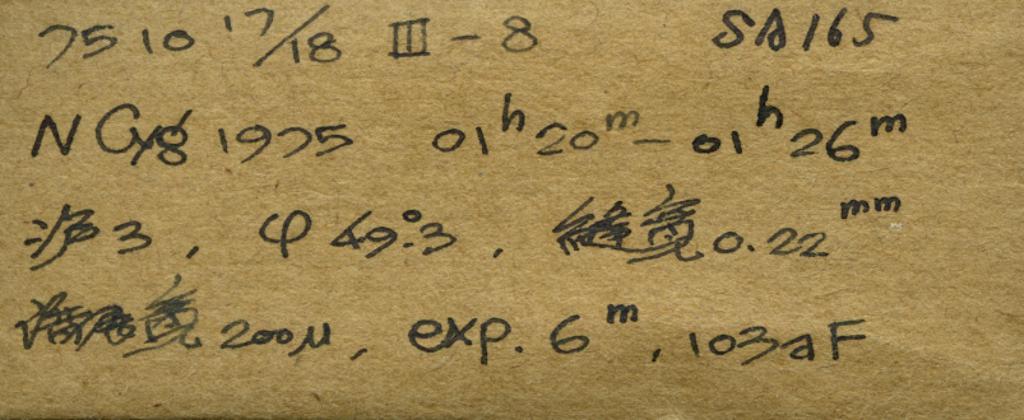 7510 17/18 III-8 SA165
N Cyg 1975 01h20m-01h26m
沪3, φ 49°.3, 缝宽 0.22mm
谱宽 200μ, exp. 6m, 103aF